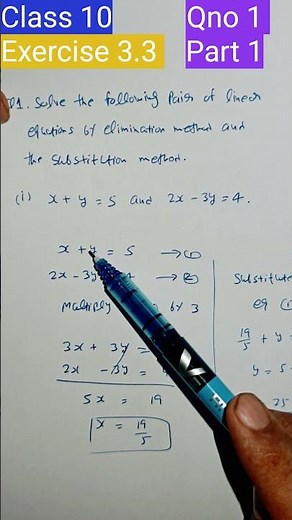 Class 10
Qno 1
Exercise 3.3
Part 1
Q1. Solve the following Pairs of linear
equations by elimination method and
the substitution method.
(i) x + y = 5 and 2x - 3y = 4.
x + y = 5 → ①
2x - 3y 4 → ②
Multiply by 3
3x + 3y =
2x - 3y =
5x = 19
x = 19/5
Substitute
eq (1)
19/5 + y =
y = 5 -
25